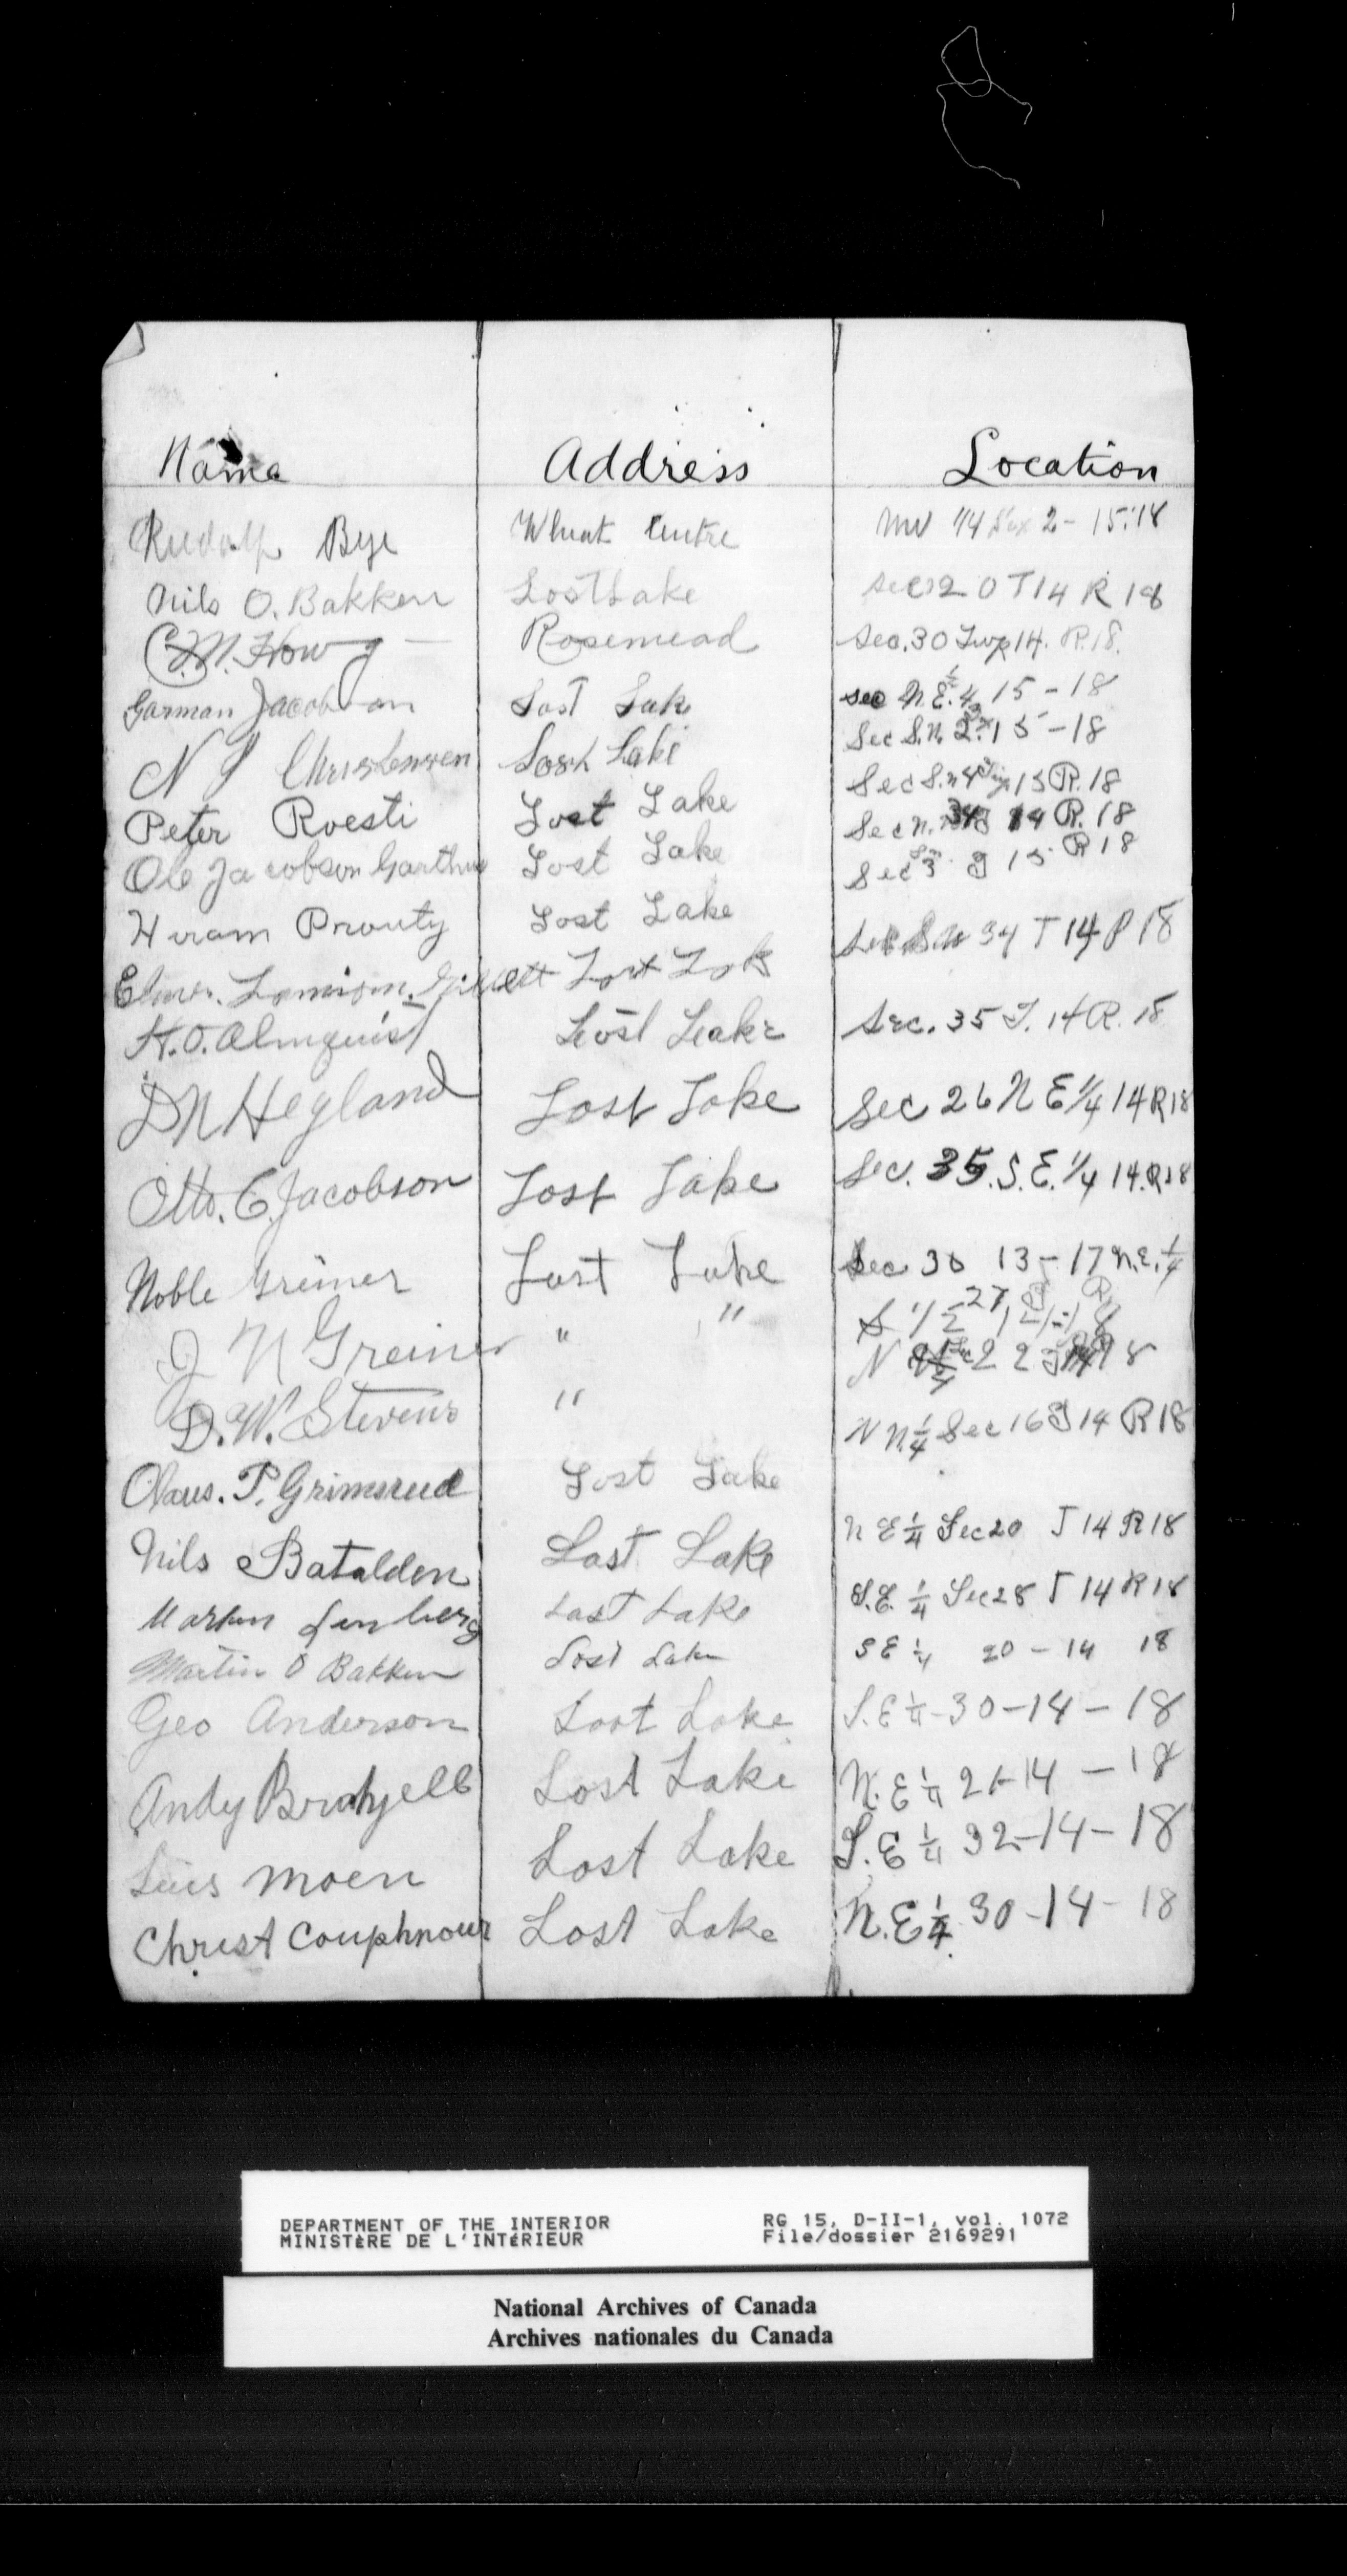 Name Address Location
Rudolf Bye Wheat Centre NW 1/4 Sec 2 - 15 - 18
Nils O. Bakken Lost Lake Sec 20 T14 R 18
C.M. How Rosemead Sec. 30 Twp 14. R.18.
Garman Jacobson Lost Lake Sec N.E. 4 15 - 18
N J Christensen Lost Lake Sec S.W. 2 15 - 18
Peter Roesti Lost Lake Sec S.W 4 15 R. 18
Ole Jacobson Garthus Lost Lake Sec N. 34 14 R. 18
Hiram Prouty Lost Lake Sec 3 T 15 R 18
Elmer. Gillett Lost Lak Sec 34 T 14 R 18
H.O. Almquist Lost Lake Sec. 35 T. 14 R. 18
D N Hegland Lost Lake Sec 26 N E 1/4 14 R 18
Otto. C. Jacobson Lost Lake Sec. 35. S.E. 1/4 14. R 18
Noble Greiner Lost Lake Sec 30 13 - 17 N.E. 1/4
J N Greiner " " S 1/2 27
D. W. Stevens " N 22 18
N W 1/4 Sec 16 T 14 R 18
Claus. P. Grimsrud Lost Lake
Nils Batalden Lost Lake N E 1/4 Sec 20 T 14 R 18
Martin Lost Lake S.E. 1/4 Sec 28 T 14 R 18
Martin O Bakken Lost Lake S E 1/4 20 - 14 18
Geo Anderson Lost Lake S.E 1/4 - 30 - 14 - 18
Andy Lost Lake N.E 1/4 21 - 14 - 18
Moen Lost Lake S.E 1/4 32 - 14 - 18
Christ Couphnour Lost Lake N.E 1/4 30 - 14 - 18
DEPARTMENT OF THE INTERIOR RG 15, D-II-1, vol. 1072
MINISTÈRE DE L'INTÉRIEUR File/dossier 2169291
National Archives of Canada
Archives nationales du Canada